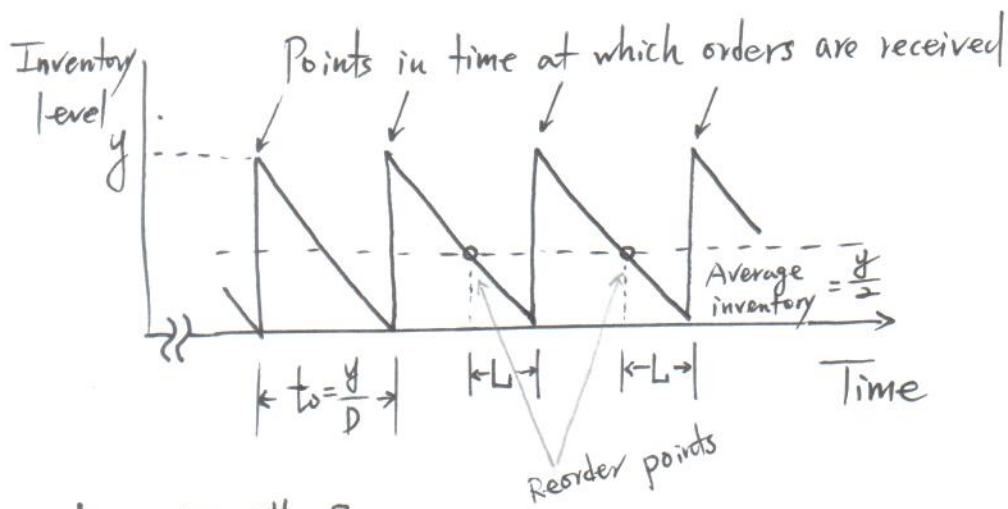 Inventory level
Points in time at which orders are received
y
Average inventory = y/2
t₀ = y/D
L
L
Time
Reorder points